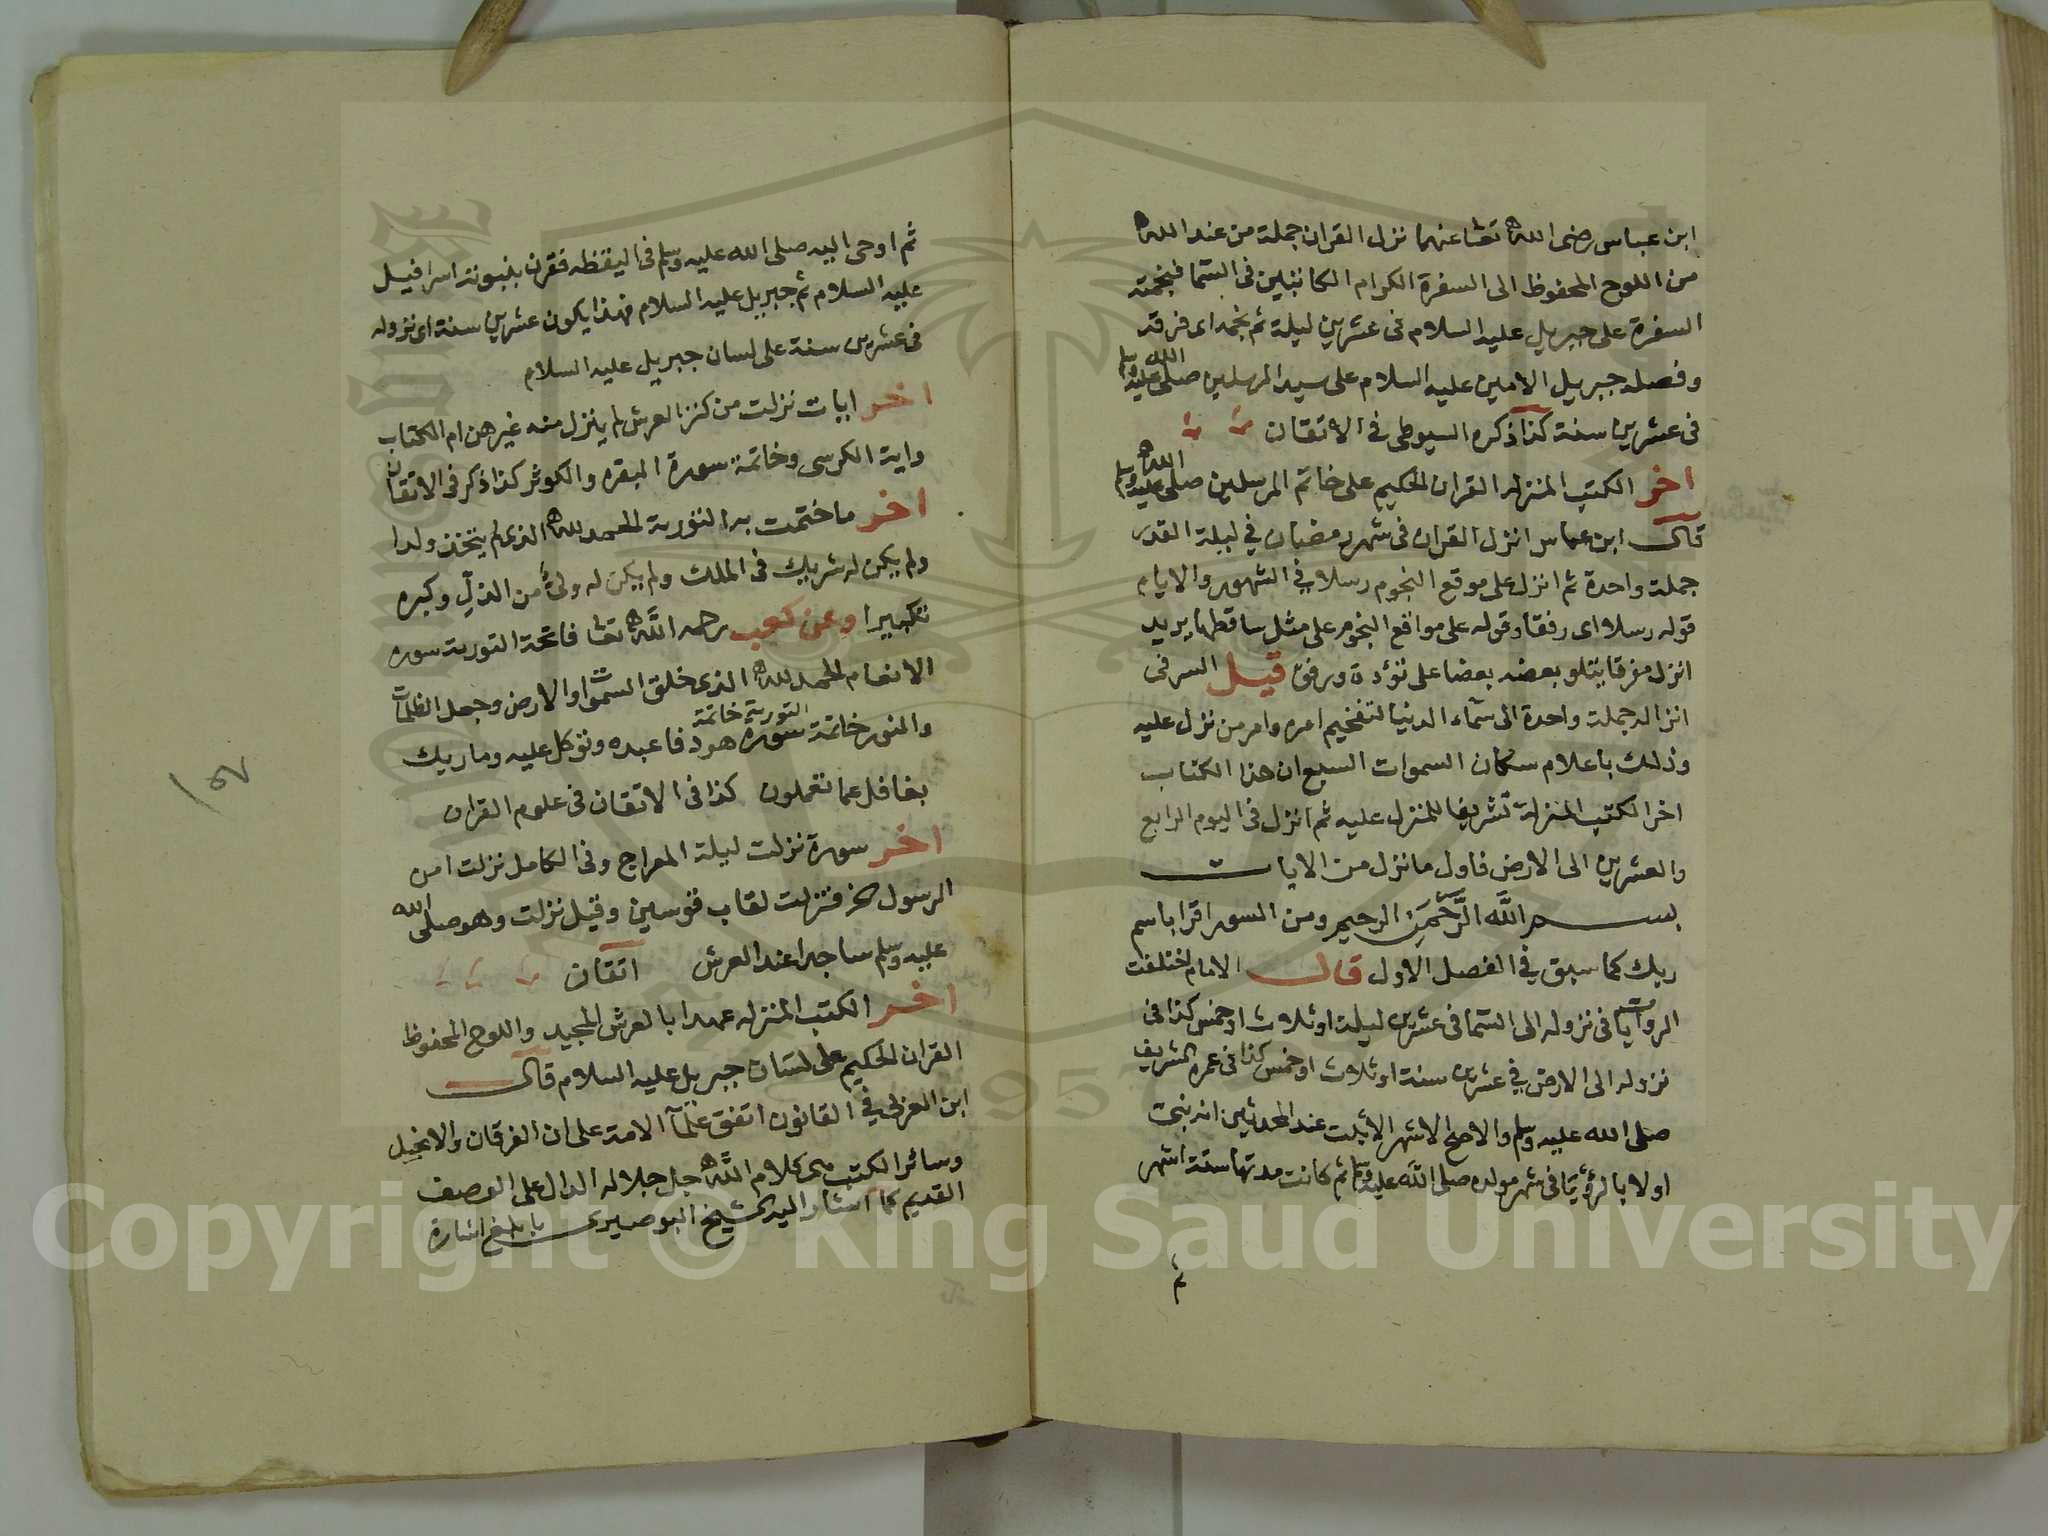 ابن عباس رضى الله تعا عنهما نزل القران جملة من عند الله
من اللوح المحفوظ الى السفرة الكرام الكاتبين فى السما فنجمته
السفرة على جبريل عليه السلام فى عشرين ليلة ثم نجمه اى فرقه
وفصله جبريل الامين عليه السلام على سيد المرسلين صلى الله عليه وسلم
فى عشرين سنة كذا ذكره السيوطى فى الاتقان
اخر الكتب المنزله القران الحكيم على خاتم المرسلين صلى الله عليه وسلم
قال ابن عباس انزل القران فى شهر رمضان في ليلة القدر
جملة واحدة ثم انزل على موقع النجوم رسلا في الشهور والايام
قوله رسلا اى رفقا وقوله على مواقع النجوم على مثل ساقطها يريد
انزل مفرقا يتلو بعضه بعضا على تؤدة ورفق قيل السر فى
انزاله جملة واحدة الى سماء الدنيا لتفخيم امره وامر من نزل عليه
وذلك باعلام سكان السموات السبع ان هذا الكتاب
اخر الكتب المنزلة تشريفا للمنزل عليه ثم انزل فى اليوم الرابع
والعشرين الى الارض فاول ما نزل من الايات
بسم الله الرحمن الرحيم ومن السور اقرا باسم
ربك كما سبق في الفصل الاول قال الامام اختلفت
الروايات فى نزوله الى السما فى عشرين ليلة او ثلاث او خمس كذا فى
نزوله الى الارض في عشرين سنة او ثلاث او خمس كذا فى عمره الشريف
صلى الله عليه وسلم والاصح الاشهر الاثبت عند المحدثين انه نبئ
اولا بالرؤيا فى شهر مولده صلى الله عليه وسلم ثم كانت مدتها ستة اشهر
ثم
ثم اوحى اليه صلى الله عليه وسلم فى اليقظه فقرن بنبوته اسرافيل
عليه السلام ثم جبريل عليه السلام فهذا يكون عشرين سنة اى نزوله
فى عشرين سنة على لسان جبريل عليه السلام
اخر ايات نزلت من كنز العرش لم ينزل منه غيرهن ام الكتاب
واية الكرسى وخاتمة سورة البقره والكوثر كذا ذكر فى الاتقان
اخر ما ختمت به التورية الحمد لله الذى لم يتخذ ولدا
ولم يكن له شريك فى الملك ولم يكن له ولى من الذل وكبره
تكبيرا وعن كعب رحمه الله تعا فاتحة التورية سوره
الانعام الحمد لله الذى خلق السموات والارض وجعل الظلمات
والنور خاتمة التورية خاتمة سورة هود فاعبده وتوكل عليه وما ربك
بغافل عما تعملون كذا فى الاتقان فى علوم القران
اخر سورة نزلت ليلة المعراج وفى الكامل نزلت امن
الرسول لقاب قوسين وقيل نزلت وهو صلى الله
عليه وسلم ساجدا عند العرش اتقان
اخر الكتب المنزله عهدا بالعرش المجيد واللوح المحفوظ
القران الحكيم على لسان جبريل عليه السلام قال
ابن العربى في القانون اتفق علما الامة على ان الفرقان والانجيل
وسائر الكتب كلام الله جل جلاله الدال على الوصف
القديم كما اشار اليه الشيخ البوصيرى بابلغ اشارة
Copyright © King Saud University
1957